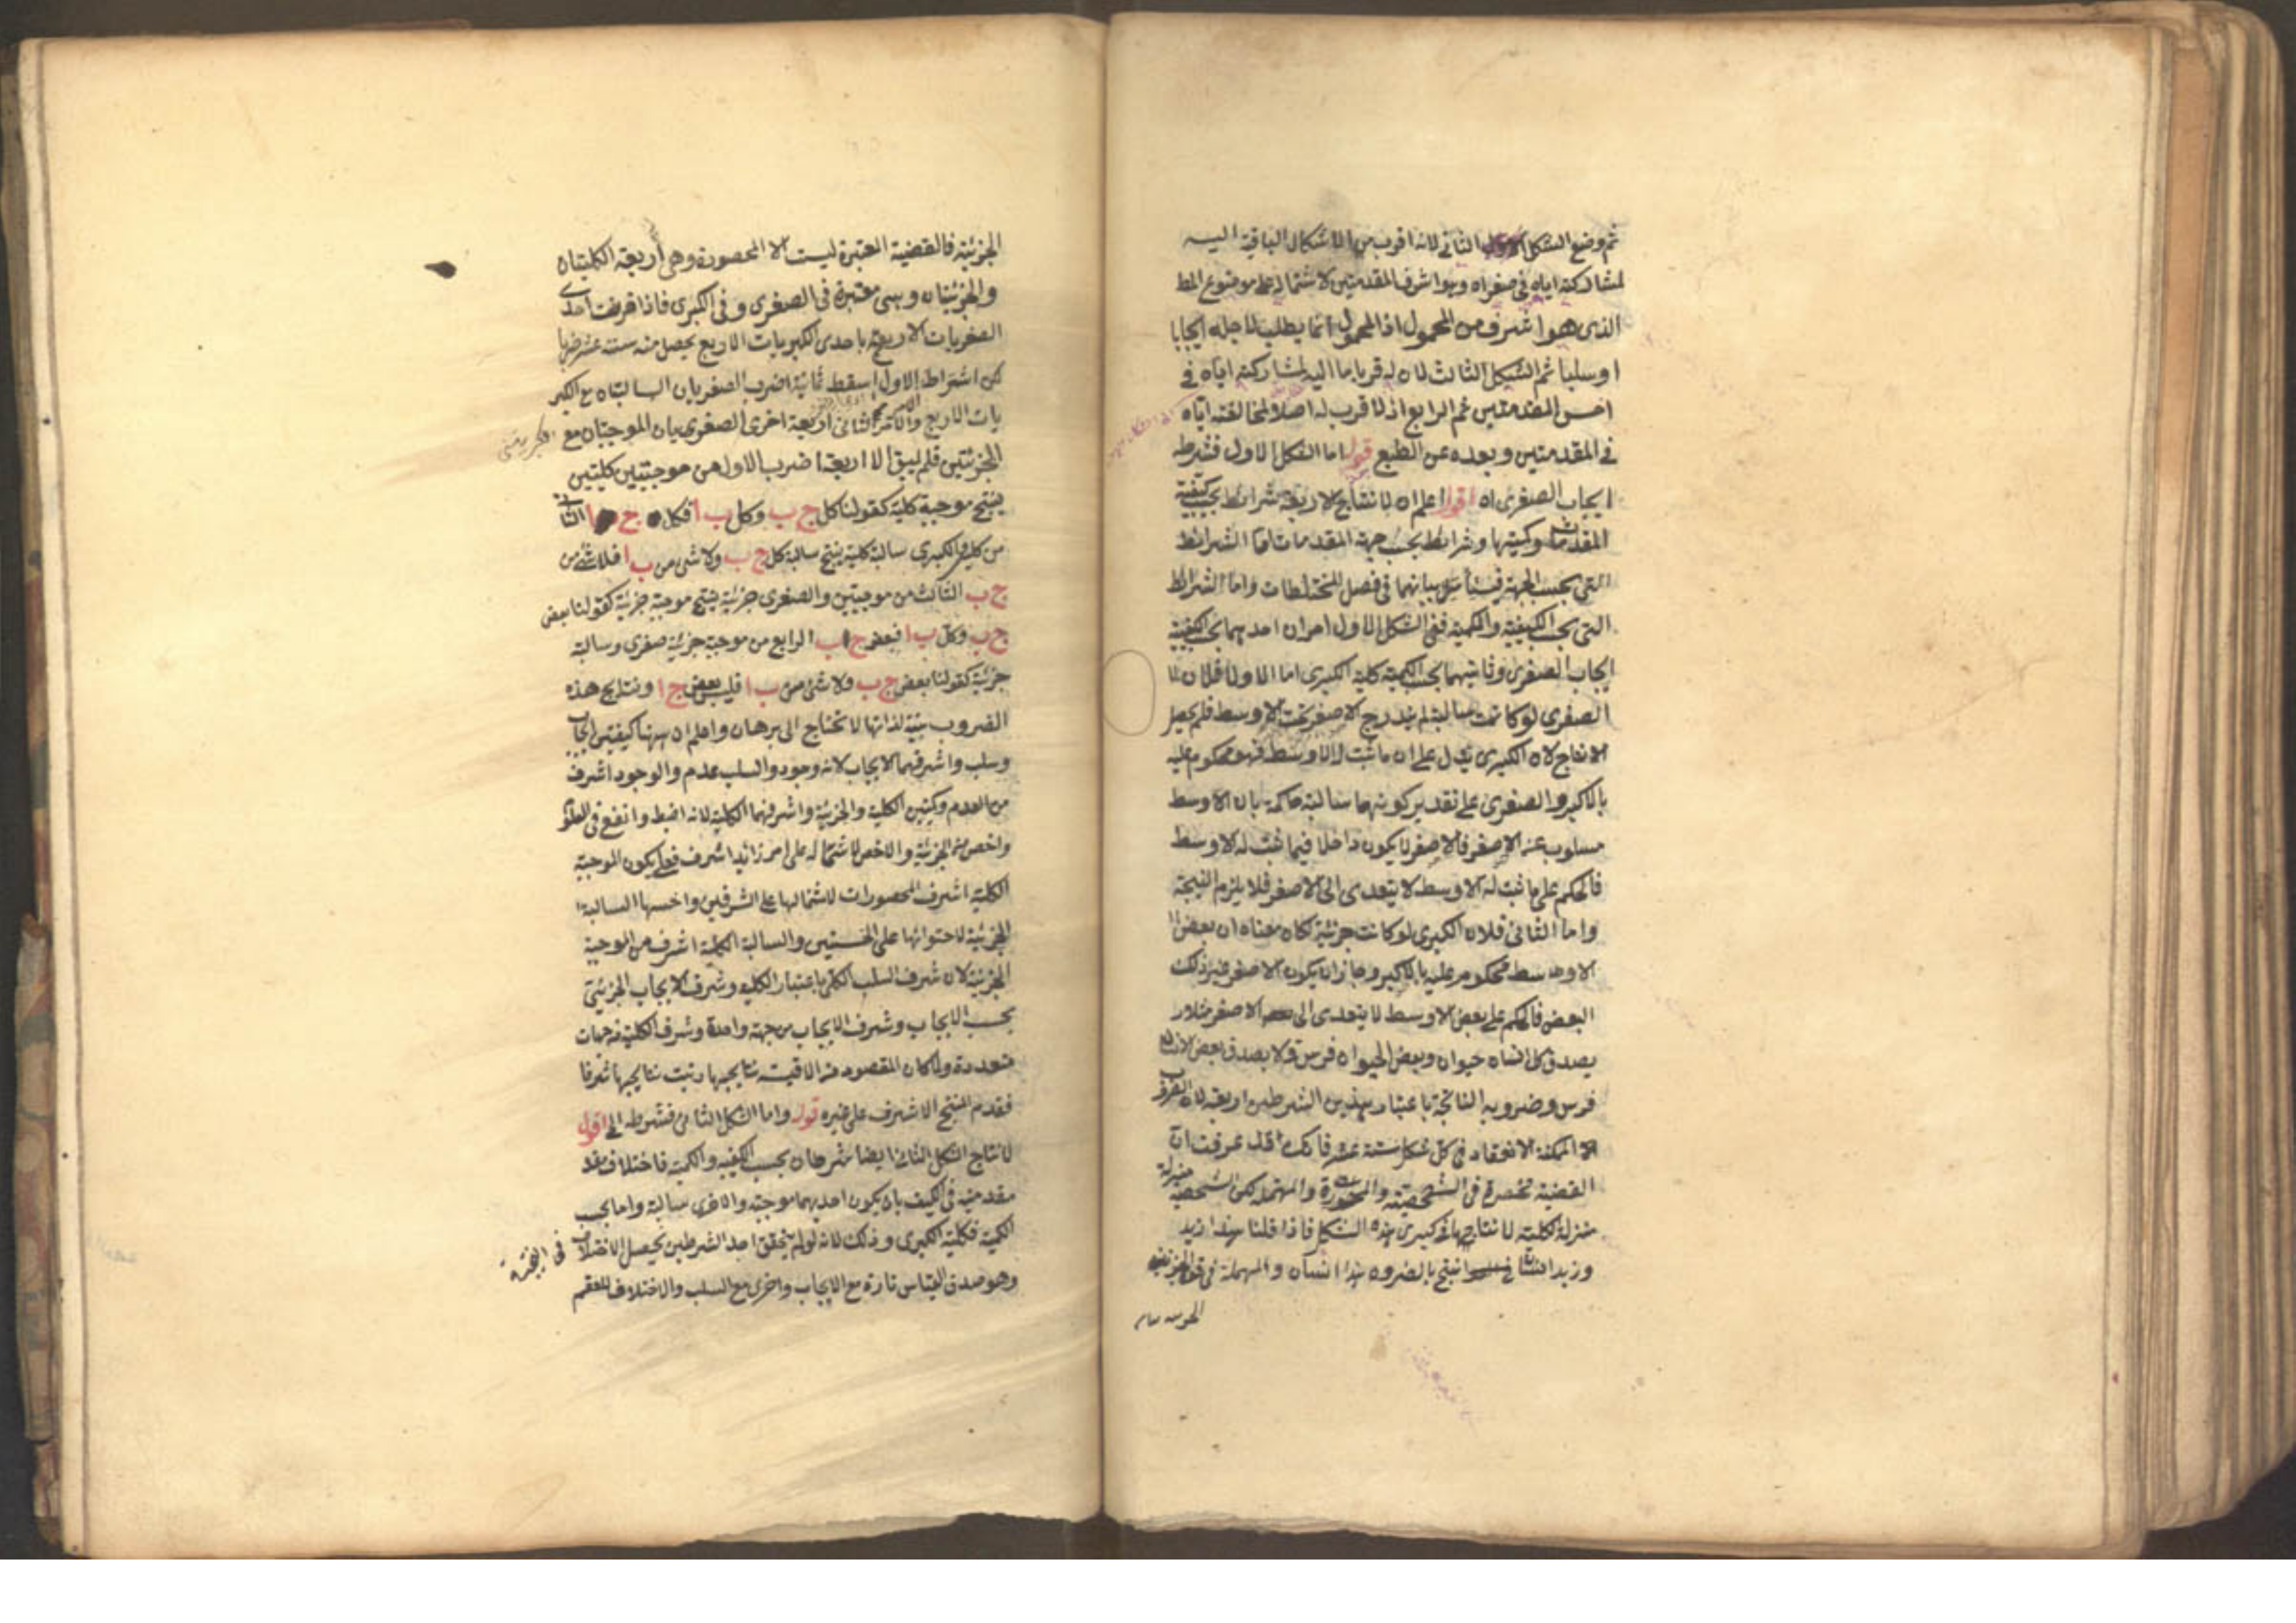 ثم وضع الشكل الثانى لانه اقرب من الاشكال الباقية اليه
لمشاركته اياه فى صغراه وهو اشرف المقدمتين لاشتماله على موضوع المط
الذى هو اشرف من المحمول اذ المحمول انما يطلب لاجله ايجابا
او سلبا ثم الشكل الثالث لان له قربا ما اليه لمشاركته اياه فى
اخس المقدمتين ثم الرابع اذ لا قرب له اصلا لمخالفته اياه
فى المقدمتين وبعده عن الطبع قوله اما الشكل الاول فشرطه
ايجاب الصغرى اه اقول اعلم ان لانتاج الاربعة شرائط بحسب كيفية
المقدمات وكميتها وشرائط بحسب جهة المقدمات اما الشرائط
التى بحسب الجهة فسيأتى بيانها فى فصل المختلطات واما الشرائط
التى بحسب الكيفية والكمية ففى الشكل الاول امران احدهما بحسب الكيفية
ايجاب الصغرى وثانيهما بحسب الكمية كلية الكبرى اما الاول فلان
الصغرى لو كانت سالبة لم يندرج الاصغر تحت الاوسط فلم يحصل
الانتاج لان الكبرى يدل على ان ما ثبت له الاوسط فهو محكوم عليه
بالاكبر والصغرى على تقدير كونها سالبة حاكمة بان الاوسط
مسلوب عنه الاصغر فالاصغر لا يكون داخلا فيما ثبت له الاوسط
فالحكم على ما ثبت له الاوسط لا يتعدى الى الاصغر فلا يلزم النتيجة
واما الثانى فلان الكبرى لو كانت جزئية لكان معناه ان بعض
الاوسط محكوم عليه بالاكبر وجاز ان يكون الاصغر غير ذلك
البعض فالحكم على بعض الاوسط لا يتعدى الى الاصغر مثلا
يصدق كل انسان حيوان وبعض الحيوان فرس ولا يصدق بعض الانسان
فرس وضروبه الناتجة باعتبار هذين الشرطين اربعة لان الضروب
الممكنة الانعقاد فى كل شكل ستة عشر فانك قد عرفت ان
القضية منحصرة فى الشخصية والمحصورة والمهملة لكن الشخصية منزلة
منزلة الكلية لانتاجها فى كبرى هذه الشكل فاذا قلنا هذا زيد
وزيد انسان انتج بالضروره هذا انسان والمهملة فى قوة الجزئية
الجزئية فالقضية المعتبرة ليست الا المحصورة وهى اربعة الكليتان
والجزئيتان وهى معتبرة فى الصغرى وفى الكبرى فاذا قرنت احدى
الصغريات الاربعة باحدى الكبريات الاربع يحصل منه ستة عشر ضربا
لكن اشتراط الاول اسقط ثمانية اضرب الصغريان السالبتان مع الكبر
يات الاربع والثانى اربعة اخرى الصغريان الموجبتان مع
الجزئيتين فلم يبق الا اربعة اضرب الاول من موجبتين كليتين
ينتج موجبة كلية كقولنا كل ج ب وكل ب ا فكل ج ا الثانى
من كليتين والكبرى سالبة كلية ينتج سالبة كل ج ب ولا شئ من ب ا فلا شئ من
ج ب الثالث من موجبتين والصغرى جزئية ينتج موجبة جزئية كقولنا بعض
ج ب وكل ب ا فبعض ج ب الرابع من موجبة جزئية صغرى وسالبة
جزئية كقولنا بعض ج ب ولا شئ من ب ا فليس بعض ج ا ونتايج هذه
الضروب بينة لذاتها لا تحتاج الى برهان واعلم ان ههنا كيفيتين ايجاب
وسلب واشرفهما الايجاب لانه وجود والسلب عدم والوجود اشرف
من العدم وكميتين الكلية والجزئية واشرفهما الكلية لانه اضبط وانفع فى العلوم
واخص من الجزئية والاخص لاشتماله على امر زايد اشرف فعلى يكون الموجبة
الكلية اشرف المحصورات لاشتمالها على الشرفين واخسها السالبة
الجزئية لاحتوائها على الخستين والسالبة الكلية اشرف من الموجبة
الجزئية لان شرف السلب الكلى باعتبار الكلية وشرف الايجاب الجزئى
بحسب الايجاب وشرف الايجاب من جهة واحدة وشرف الكلية من جهات
متعددة ولما كان المقصود من الاقيسة نتايجها رتبت نتايجها شرفا
فقدم المنتج الاشرف على غيره قوله واما الشكل الثانى فشرطه الى اقول
لانتاج الشكل الثانى ايضا شرطان بحسب الكيفية والكمية فاختلاف
مقدمتيه فى الكيف بان يكون احديهما موجبة والاخرى سالبة واما بحسب
الكمية فكلية الكبرى وذلك لانه لو لم يتحقق احد الشرطين يحصل الاختلاف فى النتيجة
وهو صدق القياس تارة مع الايجاب واخرى مع السلب والاختلاف للعقم